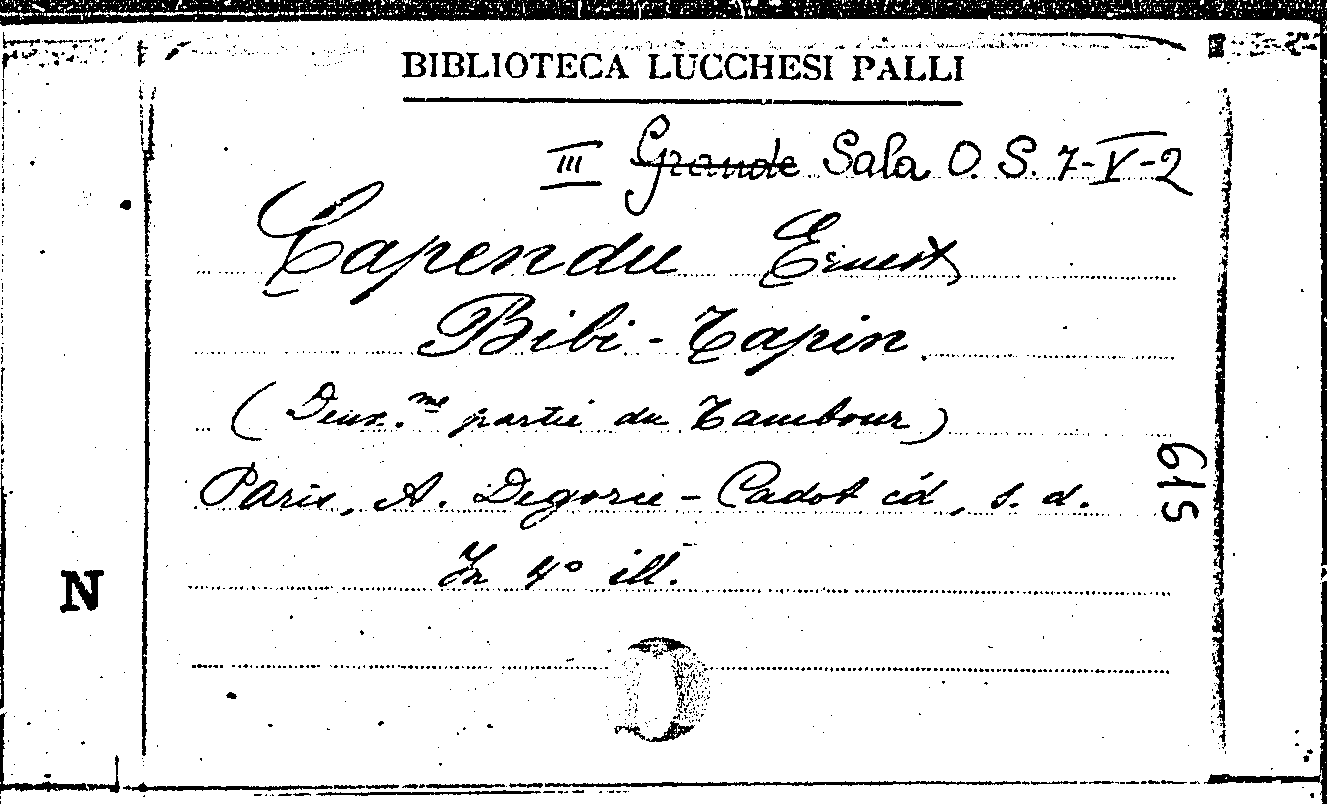 BIBLIOTECA LUCCHESI PALLI
III Grande Sala O. S. 7-V-2
Capendu Ernest
Bibi-Tapin
(Deux.me partie du Tambour)
Paris, A. Degorce-Cadot éd, s. d.
In 4º ill.
N
619